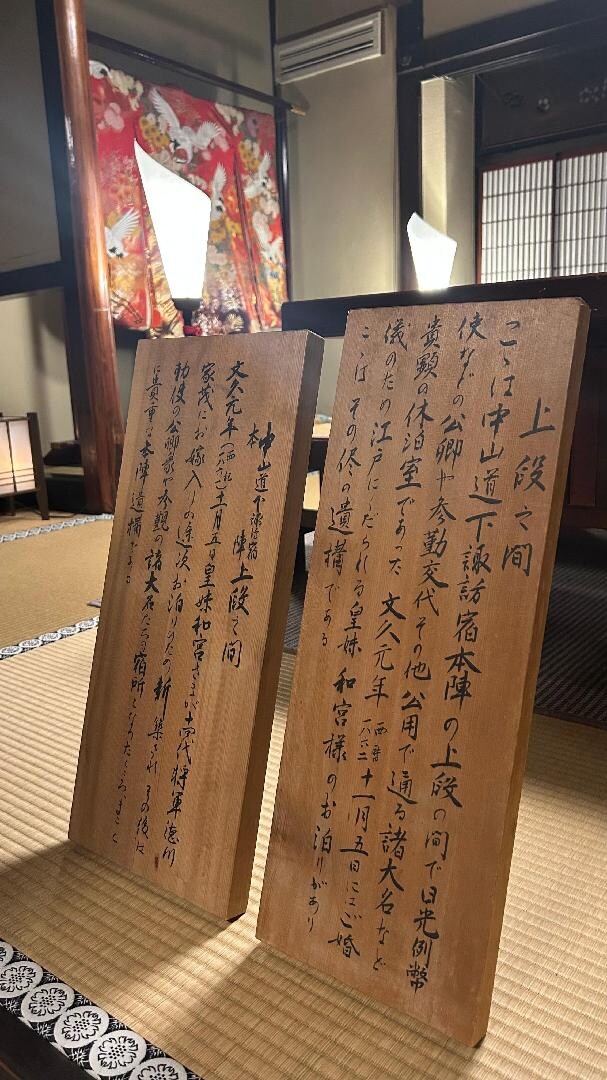 上段之間
こゝは中山道下諏訪宿本陣の上段の間で日光例幣
使などの公卿や参勤交代その他公用で通る諸大名など
貴顕の休泊室であった 文久元年 西暦一八六二 十一月五日にはご婚
儀のため江戸にくだられる皇妹 和宮様のお泊りがあり
こゝは その侭の遺構である
中山道下諏訪宿
本陣上段之間
文久元年 十一月五日皇妹和宮さまが十四代将軍徳川
家茂にお嫁入りの途次お泊りのため新築され その後は
勅使の公卿衆や参勤の諸大名たちの宿所となったところ まこと
に貴重な本陣遺構である